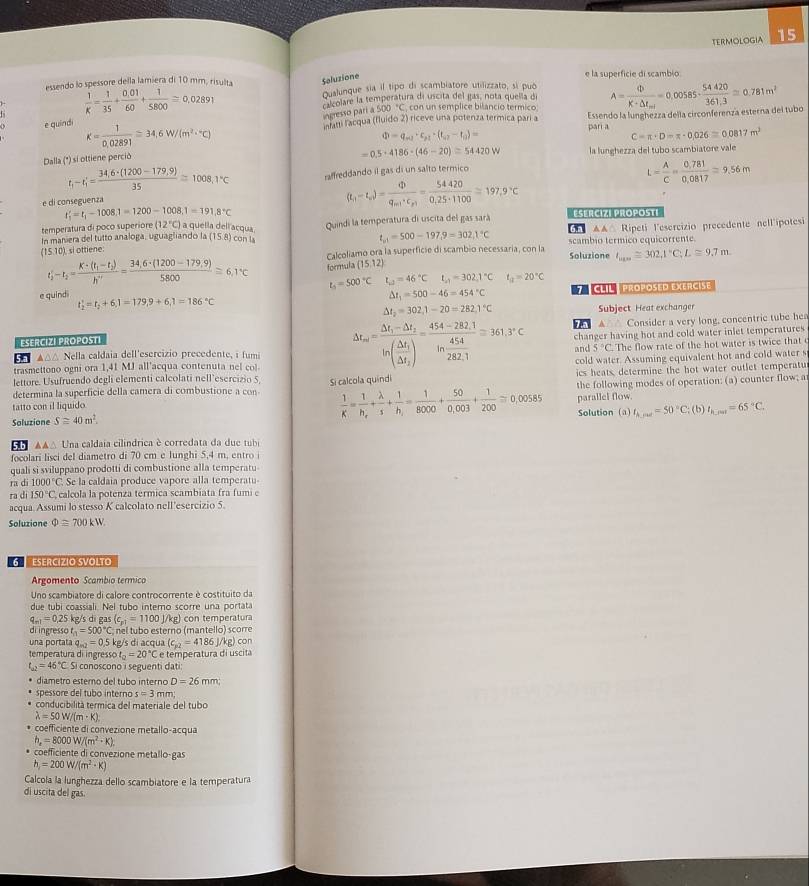 essendo lo spessore della lamiera di 10 mm, risulta
1/K = 1/35 + 0,01/60 + 1/5800 ≅ 0,02891
e quindi
K = 1/0,02891 ≅ 34,6 W/(m² · °C)
Dalla (*) si ottiene perciò
t₁ − t₁' = 34,6 · (1200 − 179,9)/35 ≅ 1008,1 °C
e di conseguenza
t₁' = t₁ − 1008,1 = 1200 − 1008,1 = 191,8 °C
temperatura di poco superiore (12 °C) a quella dell'acqua.
In maniera del tutto analoga, uguagliando la (15.8) con la
(15.10), si ottiene:
t₂' − t₂ = K · (t₁ − t₂)/h'' = 34,6 · (1200 − 179,9)/5800 ≅ 6,1 °C
e quindi
t₂' = t₂ + 6,1 = 179,9 + 6,1 = 186 °C
ESERCIZI PROPOSTI
5.a ▲△△ Nella caldaia dell'esercizio precedente, i fumi
trasmettono ogni ora 1,41 MJ all'acqua contenuta nel col-
lettore. Usufruendo degli elementi calcolati nell'esercizio 5,
determina la superficie della camera di combustione a con-
tatto con il liquido.
Soluzione S ≅ 40 m².
5.b ▲▲△ Una caldaia cilindrica è corredata da due tubi
focolari lisci del diametro di 70 cm e lunghi 5,4 m, entro i
quali si sviluppano prodotti di combustione alla temperatu-
ra di 1000 °C. Se la caldaia produce vapore alla temperatu-
ra di 150 °C, calcola la potenza termica scambiata fra fumi e
acqua. Assumi lo stesso K calcolato nell'esercizio 5.
Soluzione Φ ≅ 700 kW.
6 ESERCIZIO SVOLTO
Argomento Scambio termico
Uno scambiatore di calore controcorrente è costituito da
due tubi coassiali. Nel tubo interno scorre una portata
qm1 = 0,25 kg/s di gas (cp1 = 1100 J/kg) con temperatura
di ingresso ti1 = 500 °C; nel tubo esterno (mantello) scorre
una portata qm2 = 0,5 kg/s di acqua (cp2 = 4186 J/kg) con
temperatura di ingresso ti2 = 20 °C e temperatura di uscita
tu2 = 46 °C. Si conoscono i seguenti dati:
• diametro esterno del tubo interno D = 26 mm;
• spessore del tubo interno s = 3 mm;
• conducibilità termica del materiale del tubo
λ = 50 W/(m · K);
• coefficiente di convezione metallo-acqua
he = 8000 W/(m² · K);
• coefficiente di convezione metallo-gas
hi = 200 W/(m² · K)
Calcola la lunghezza dello scambiatore e la temperatura
di uscita del gas.
TERMOLOGIA 15
Soluzione
Qualunque sia il tipo di scambiatore utilizzato, si può
calcolare la temperatura di uscita del gas, nota quella di
ingresso pari a 500 °C, con un semplice bilancio termico;
infatti l'acqua (fluido 2) riceve una potenza termica pari a
Φ = qm2 · cp2 · (tu2 − ti2) =
= 0,5 · 4186 · (46 − 20) ≅ 54 420 W
raffreddando il gas di un salto termico
(ti1 − tu1) = Φ/(qm1 · cp1) = 54 420/(0,25 · 1100) ≅ 197,9 °C
Quindi la temperatura di uscita del gas sarà
tu1 = 500 − 197,9 = 302,1 °C
Calcoliamo ora la superficie di scambio necessaria, con la
formula (15.12):
ti1 = 500 °C tu2 = 46 °C tu1 = 302,1 °C ti2 = 20 °C
Δt₁ = 500 − 46 = 454 °C
Δt₂ = 302,1 − 20 = 282,1 °C
Δtml = (Δt₁ − Δt₂)/ln(Δt₁/Δt₂) = (454 − 282,1)/ln(454/282,1) ≅ 361,3° C
Si calcola quindi
1/K = 1/he + λ/s + 1/hi = 1/8000 + 50/0,003 + 1/200 ≅ 0,00585
e la superficie di scambio:
A = Φ/(K · Δtml) = 0,00585 · 54 420/361,3 ≅ 0,781 m²
Essendo la lunghezza della circonferenza esterna del tubo
pari a
C = π · D = π · 0,026 ≅ 0,0817 m²
la lunghezza del tubo scambiatore vale
L = A/C = 0,781/0,0817 ≅ 9,56 m
ESERCIZI PROPOSTI
6.a ▲▲△ Ripeti l'esercizio precedente nell'ipotesi
scambio termico equicorrente.
Soluzione tugas ≅ 302,1 °C; L ≅ 9,7 m.
7 CLIL PROPOSED EXERCISE
Subject Heat exchanger
7.a ▲△△ Consider a very long, concentric tube hea
changer having hot and cold water inlet temperatures
and 5 °C. The flow rate of the hot water is twice that o
cold water. Assuming equivalent hot and cold water s
ics heats, determine the hot water outlet temperatur
the following modes of operation: (a) counter flow; a
parallel flow.
Solution (a) th,out = 50 °C; (b) th,out = 65 °C.